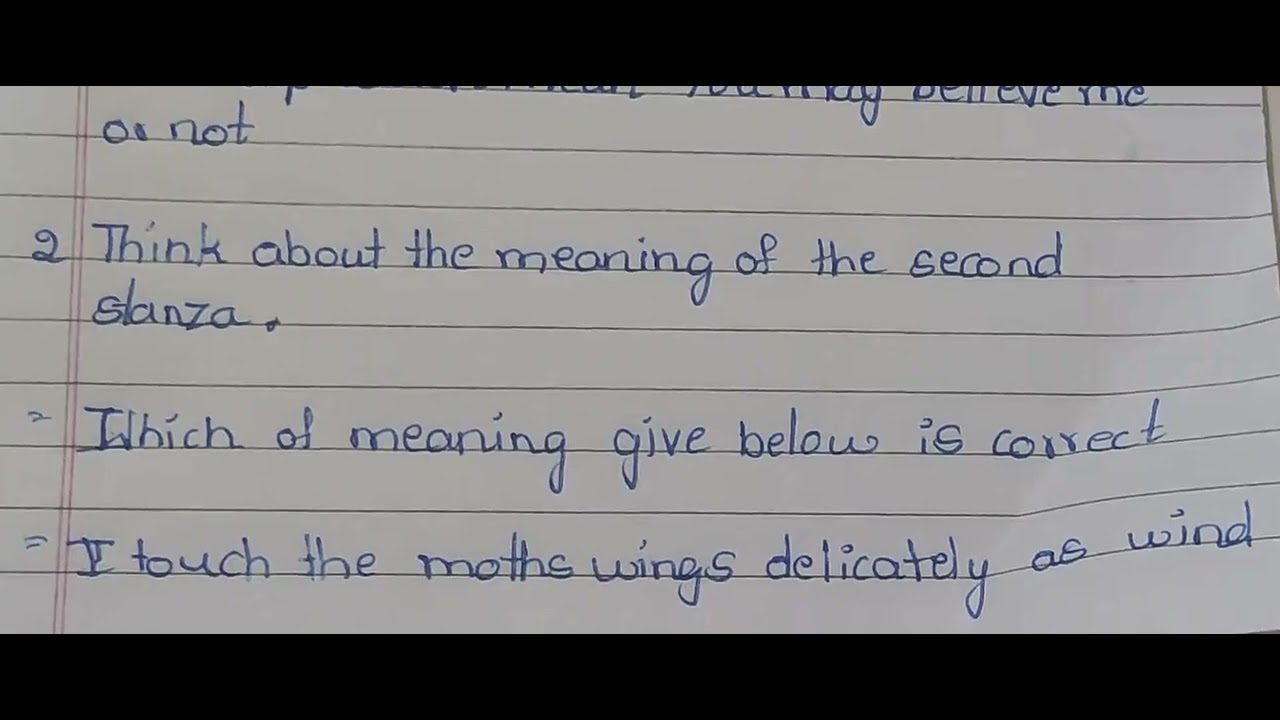 You may believe me
or not
2 Think about the meaning of the second
stanza.
= Which of meaning give below is correct
= I touch the moths wings delicately as wind